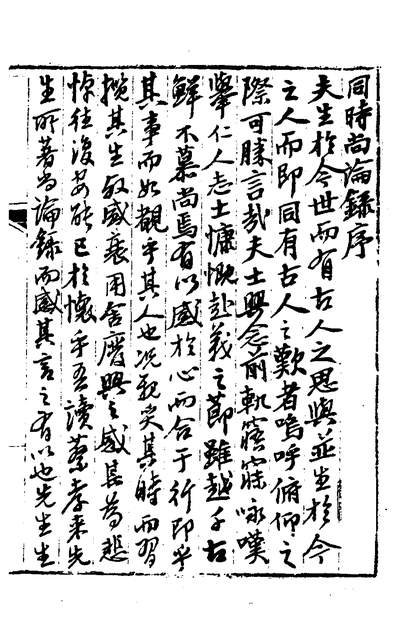 同時尚論錄序
夫生於今世而有古人之思與並生於今
之人而即同有古人之歎者嗚呼俯仰之
際可勝言哉夫士興念前軌寤寐咏嘆
舉仁人志士慷慨赴義之節雖越千古
鮮不慕尚焉有以感於心而合于行即乎
其事而如觀乎其人也況親矣其時而習
攬其生歿盛衰用舍廢興之感甚為悲
悼往復安能已於懷乎吾讀蔡孝來先
生所著尚論錄而感其言之有以也先生生